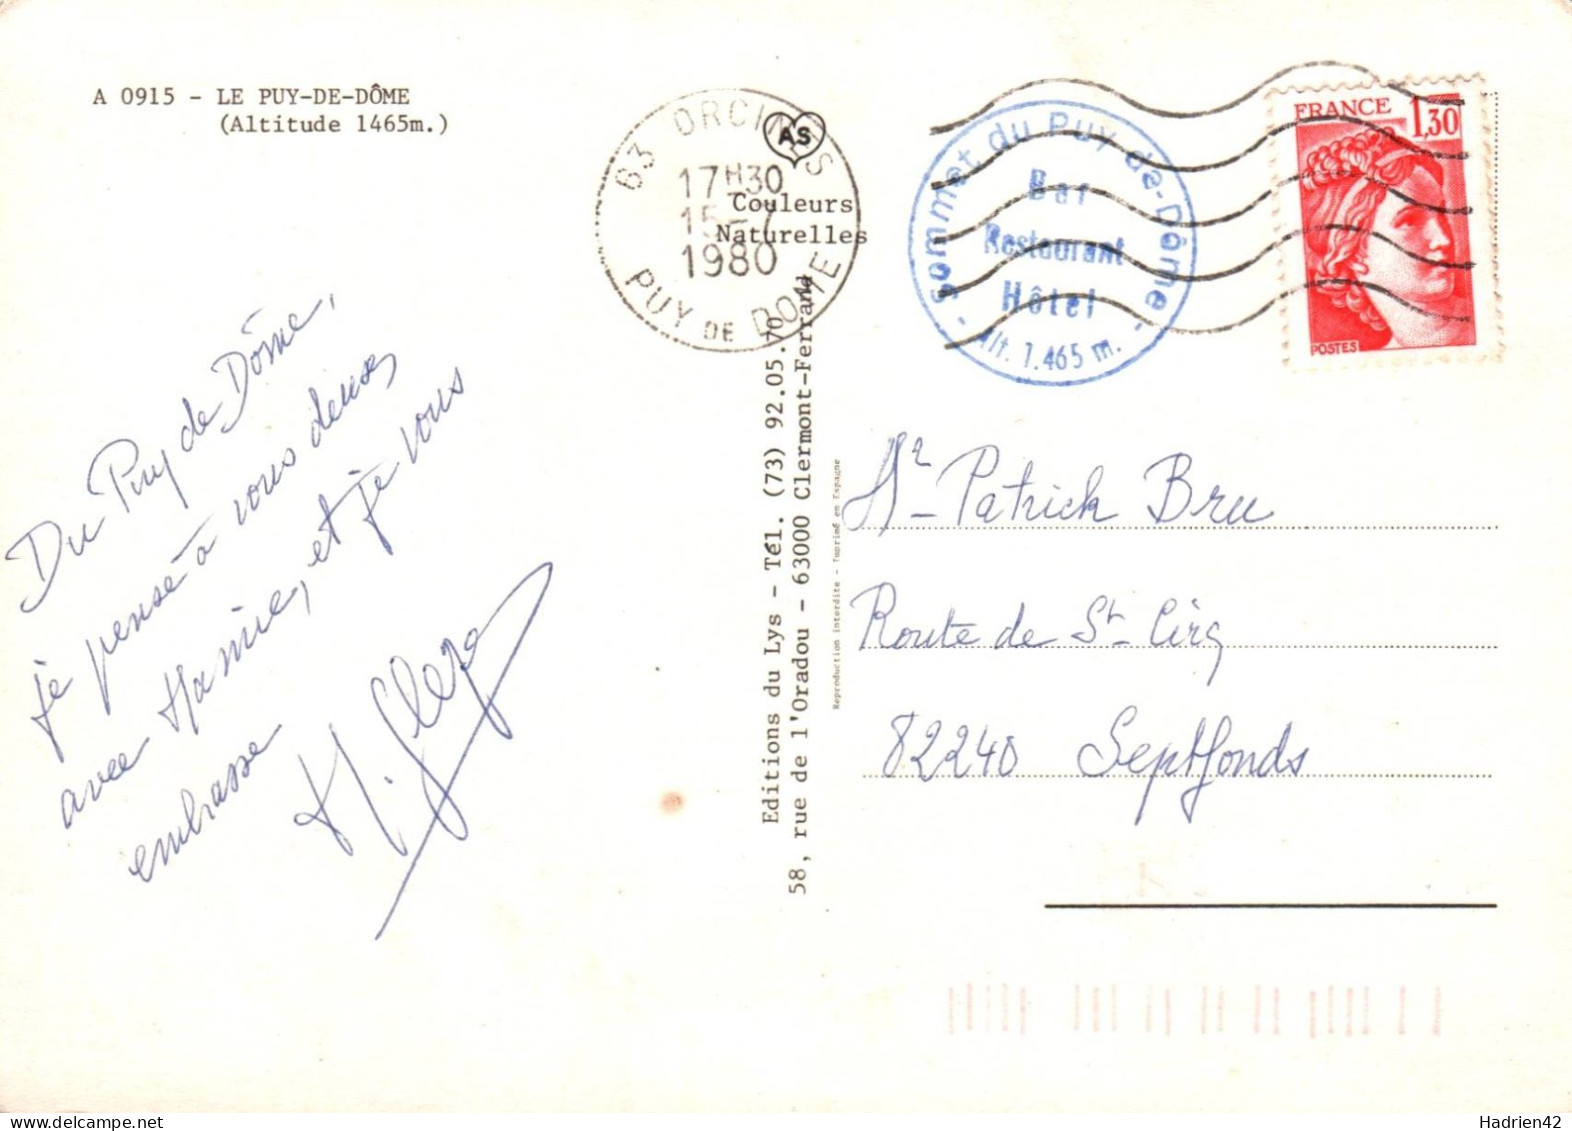 A 0915 - LE PUY-DE-DÔME
(Altitude 1465m.)
63 ORCINES
17H30
15-7
1980
PUY DE DOME
AS
Couleurs
Naturelles
- Sommet du Puy-de-Dôme -
Bar
Restaurant
Hôtel
Alt. 1.465 m.
FRANCE 1,30
POSTES
Du Puy de Dôme,
je pense à vous deux,
avec Mamie, et je vous
embrasse
Editions du Lys - Tél. (73) 92.05.70
58, rue de l'Oradou - 63000 Clermont-Ferrand
Reproduction interdite - Imprimé en Espagne
Mr Patrick Bru
Route de St Cirq
82240 Septfonds
Hadrien42